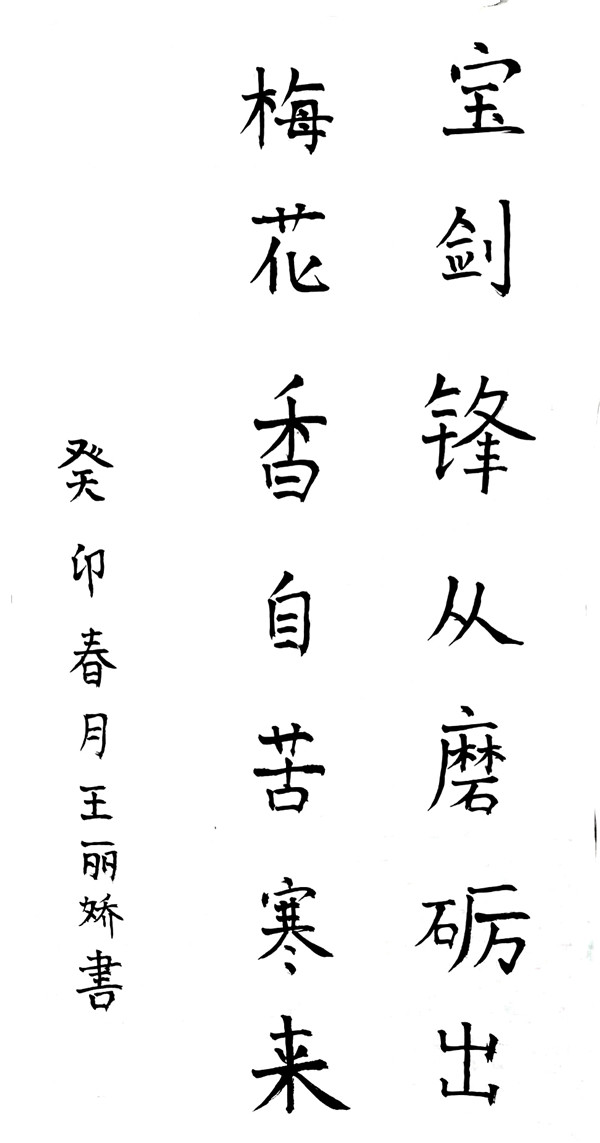 宝剑锋从磨砺出
梅花香自苦寒来
癸卯春月王丽娇書